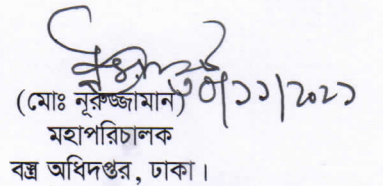 ৩০/১১/২০২১
(মোঃ নূরুজ্জামান)
মহাপরিচালক
বস্ত্র অধিদপ্তর, ঢাকা।